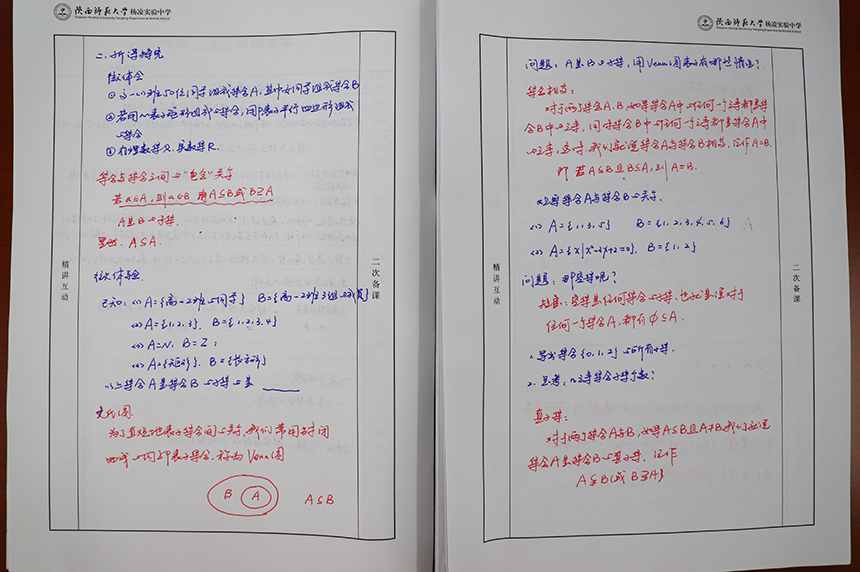 陕西师范大学杨凌实验中学
二、新课探究
微体会
① 高一(1)班50位同学组成集合A,其中女同学组成集合B
② 若用 表示矩形组成的集合,用P表示平行四边形组成
的集合
③ 有理数集Q,实数集R.
集合与集合之间的"包含"关系
若a∈A,则a∈B 有A⊆B或B⊇A
A是B的子集.
显然. A⊆A.
微体验.
已知:(1) A={高一2班的同学} B={高一2班3组的成员}
(2) A={1,2,3}, B={1,2,3,4}
(3) A=N, B=Z;
(4) A={矩形}, B={长方形}
以上集合A是集合B的子集的是
韦氏图
为了直观地表示集合间的关系,我们常用封闭
曲线的内部表示集合,称为Venn图
B A A⊆B
精讲互动
二次备课
陕西师范大学杨凌实验中学
问题:A是B的子集,用Venn图表示有哪些情况?
集合相等:
对于两个集合A.B,如果集合A中的任何一个元素都是集
合B中的元素,同时集合B中的任何一个元素都是集合A中
的元素,这时,我们就说集合A与集合B相等,记作A=B.
即 若A⊆B且B⊆A,则A=B.
观察集合A与集合B的关系.
(1) A={1,3,5} B={1,2,3,4,5,6}
(2) A={x|x²-3x+2=0}, B={1,2}
问题:那空集呢?
规定:空集是任何集合的子集,也就是说对于
任何一个集合A,都有∅⊆A.
1.写出集合{0,1,2}的所有子集.
2.思考:n元素集合子集个数?
真子集:
对于两个集合A与B,如果A⊆B且A≠B,我们就说
集合A是集合B的真子集,记作
A⫋B(或B⫌A)
精讲互动
二次备课